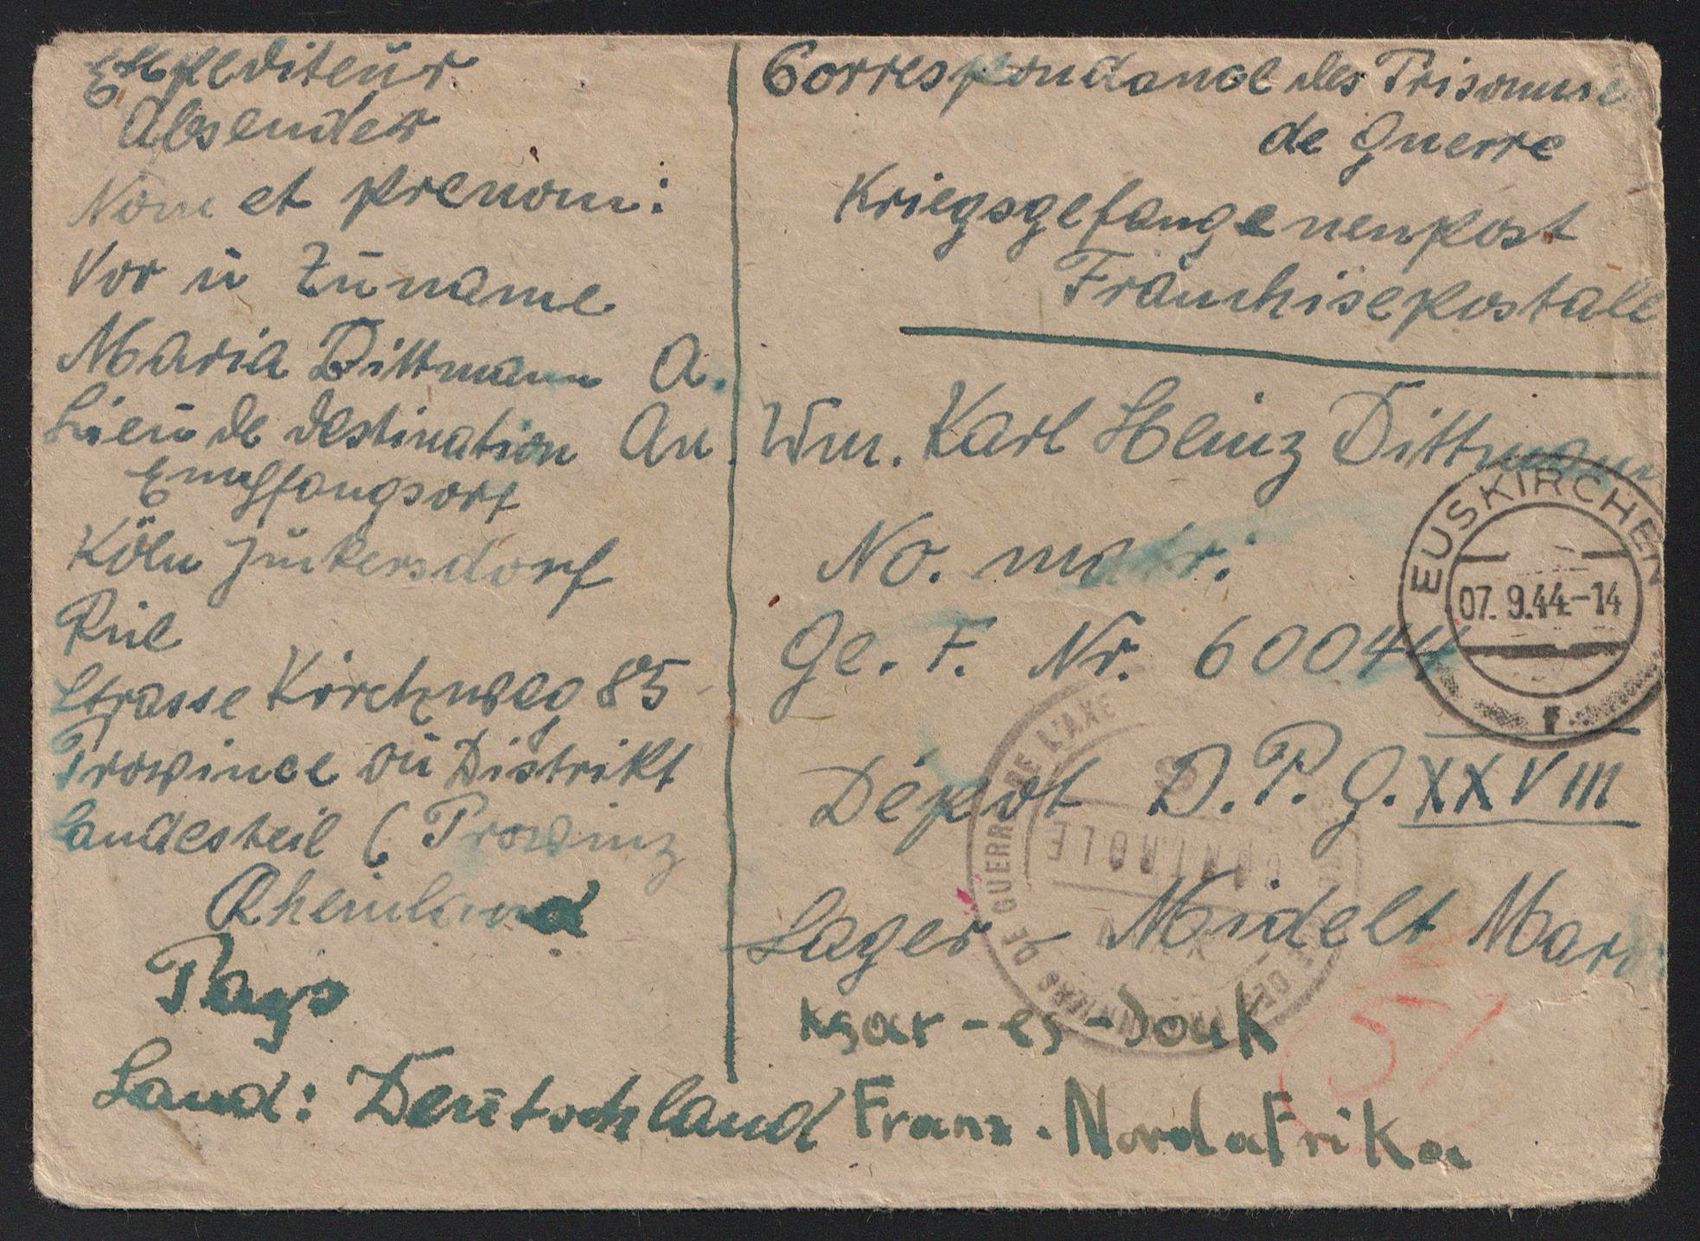 Expediteur
Absender
Nom et prenom:
Vor ü Zūname
Maria Dittmann A.
Lieū de destination An.
Empfangsort
Köln Jūnkersdorf
Rūe
Strasse Kirchweg 85
Province oū Distrikt
Landesteil (Provinz
Rheinland
Pays
Land: Deūtschland
Correspondance des Prisonnie
de Guerre
Kriegsgefangenenpost
Franchise postale
Wm. Karl Heinz Dittmann
No. matr:
Ge. F. Nr. 60044
Dépot D.P.G. XXVIII
Lager - Midelt Maro
Ksar-es-Souk
Franz. Nordafrika
EUSKIRCHEN
07.9.44-14
r
DE GUERRE DE L'AXE
CONTROLE